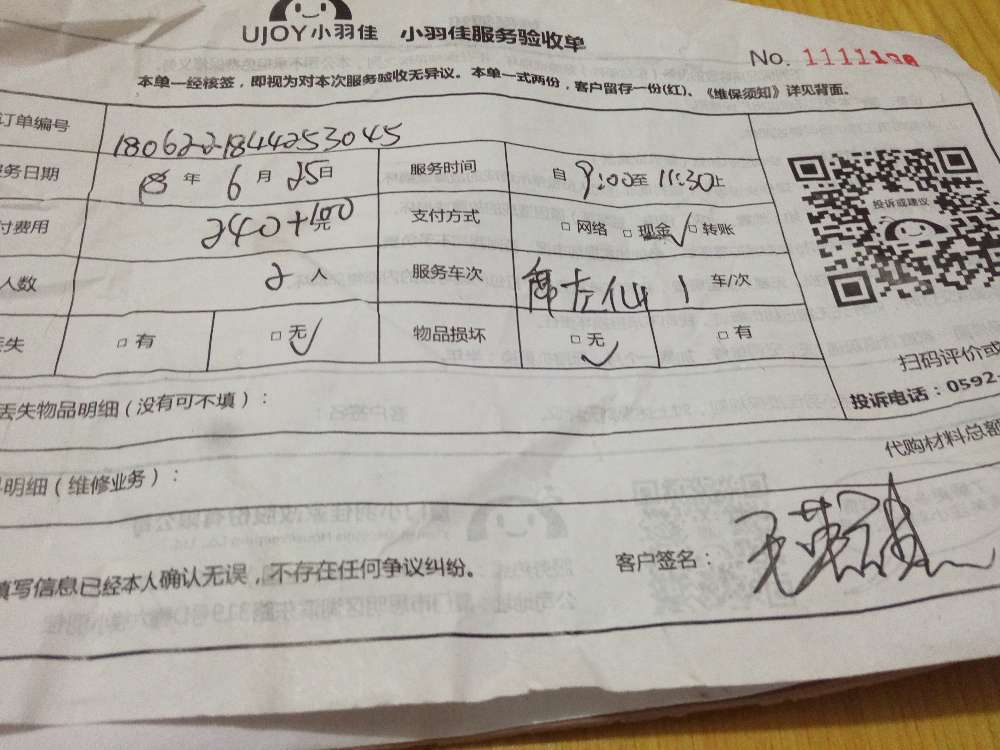 UJOY小羽佳 小羽佳服务验收单
No. 1111130
本单一经核签，即视为对本次服务验收无异议。本单一式两份，客户留存一份(红)、《维保须知》详见背面。
订单编号 180622184425 3045
务日期 18 年 6 月 25日 服务时间 自 9:00至 11:30止
付费用 240+100元 支付方式 □ 网络 □ 现金√ □ 转账
人数 2 人 服务车次 1 车/次
丢失 □ 有 □ 无√ 物品损坏 □ 无√ □ 有
投诉或建议
扫码评价或
投诉电话：0592-
丢失物品明细（没有可不填）：
代购材料总额
明细（维修业务）：
填写信息已经本人确认无误，不存在任何争议纠纷。
客户签名：